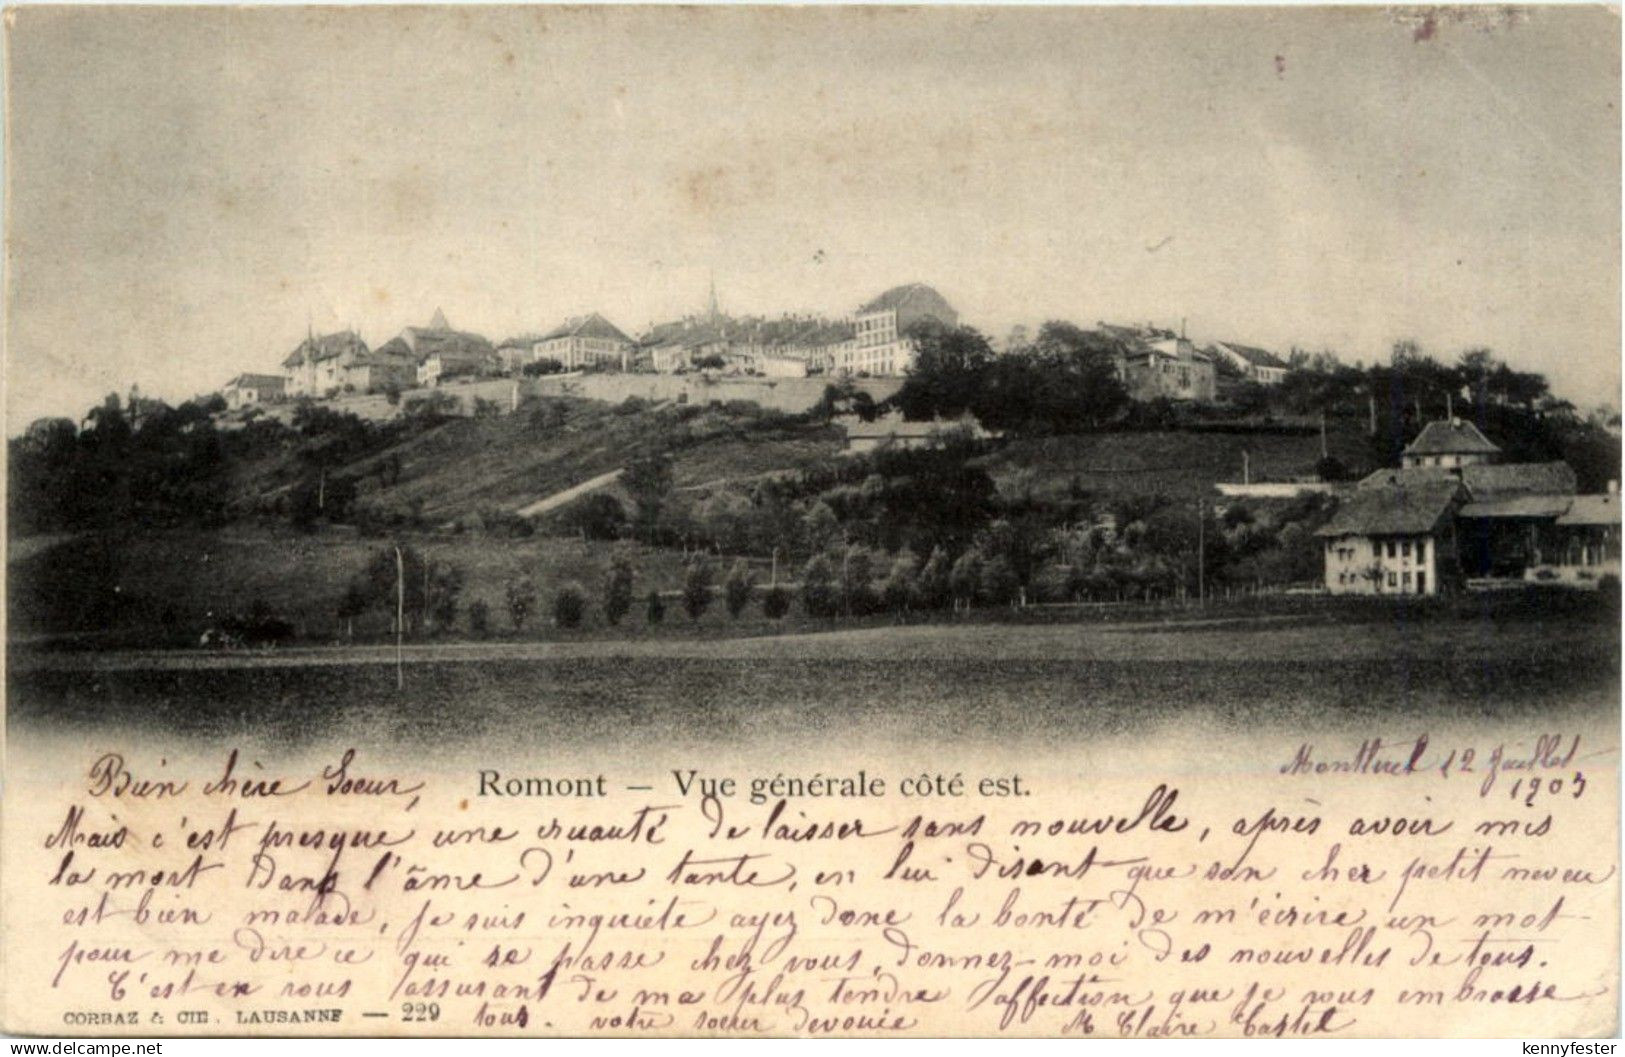 Bien chère Soeur,
Romont — Vue générale côté est.
12 Juillet
1903
Mais c'est presque une cruauté de laisser sans nouvelle, après avoir mis
la mort dans l'âme d'une tante, en lui disant que son cher petit neveu
est bien malade, je suis inquiéte ayez donc la bonté de m'écrire un mot
pour me dire ce qui se passe chez vous, donnez-moi des nouvelles de tous.
C'est en vous assurant de ma plus tendre affection que je vous embrasse
tous. votre soeur devouée M Claire Castel
CORBAZ & CIE. LAUSANNE — 229
kennyfester